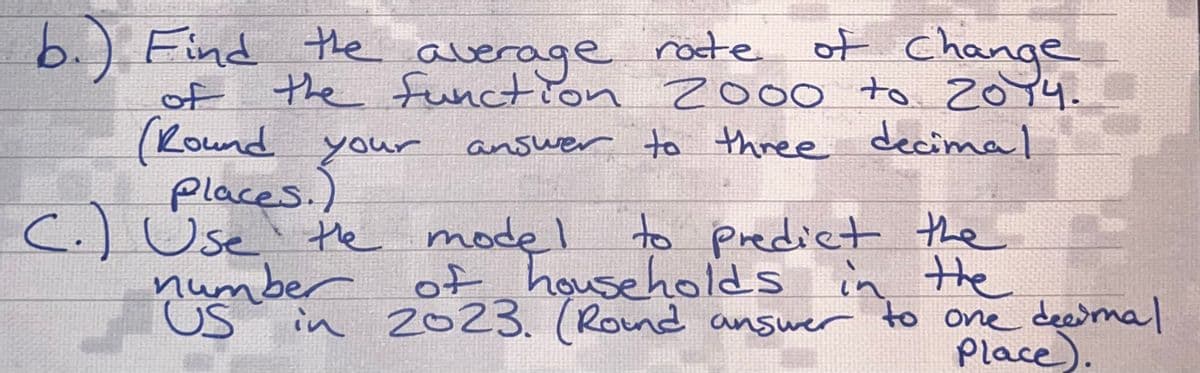 b.) Find the average rate of change
of the function 2000 to 2014.
(Round your answer to three decimal
places.)
C.) Use the model to predict the
number of households in the
US in 2023. (Round answer to one decimal
place).